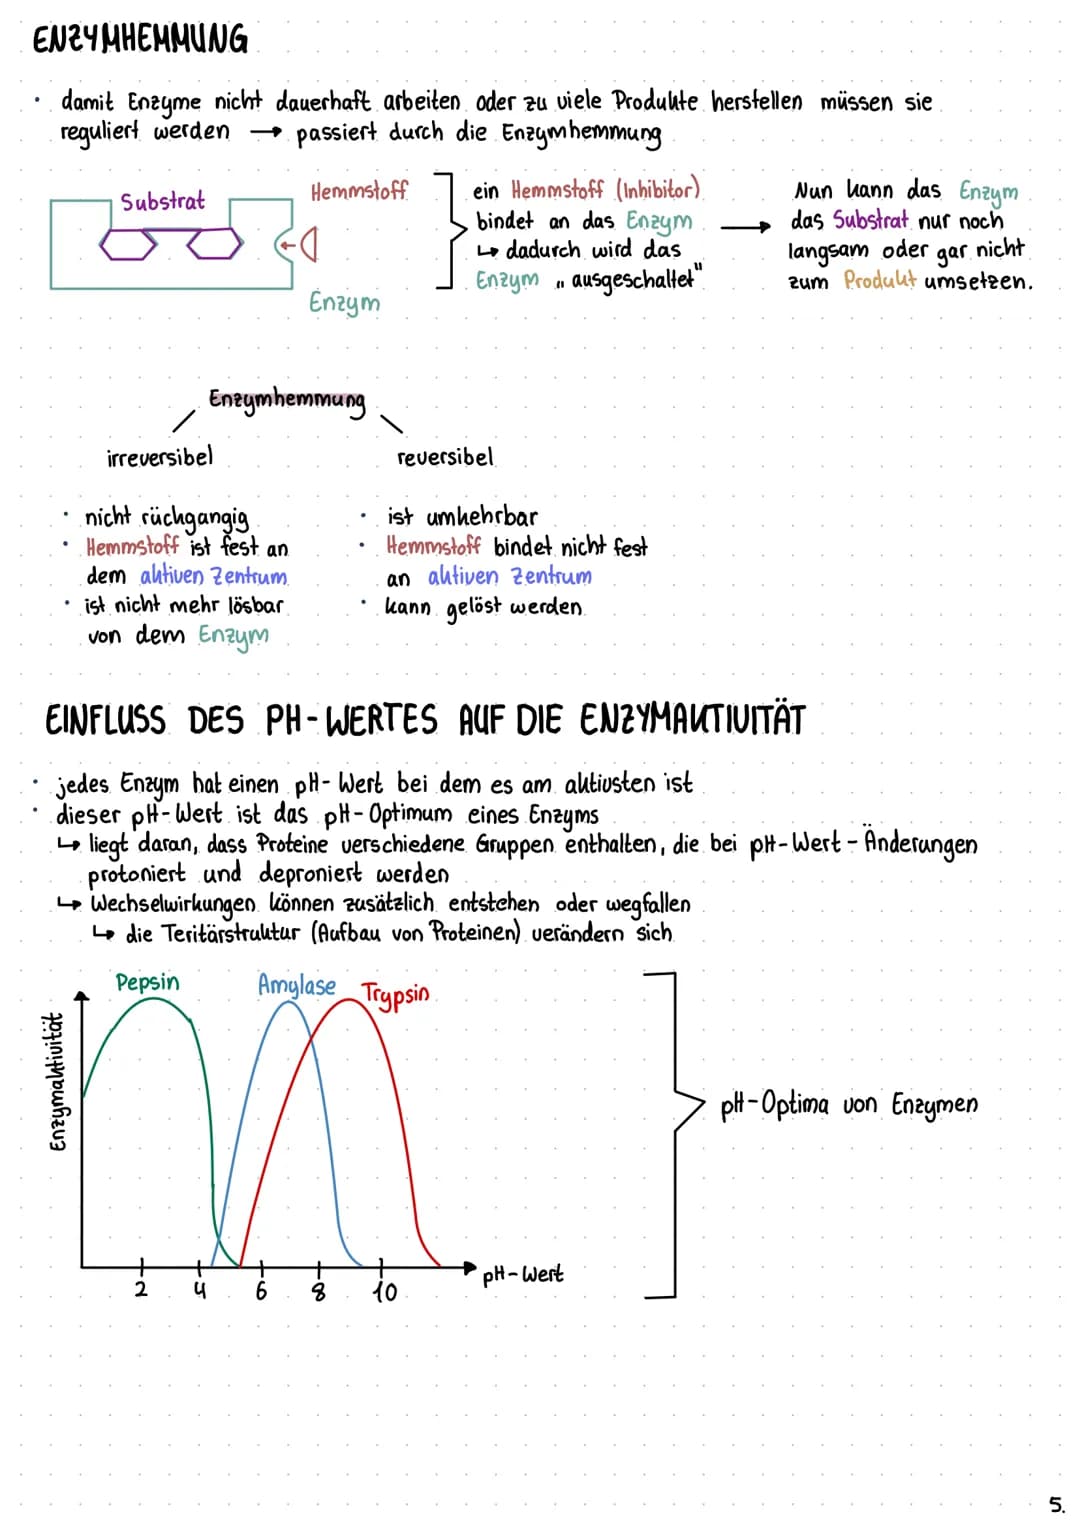 ENZYMHEMMUNG
• damit Enzyme nicht dauerhaft arbeiten oder zu viele Produkte herstellen müssen sie
reguliert werden → passiert durch die Enzymhemmung
Substrat
Hemmstoff
Enzym
ein Hemmstoff (Inhibitor)
bindet an das Enzym
↳ dadurch wird das
Enzym „ausgeschaltet"
→
Nun kann das Enzym
das Substrat nur noch
langsam oder gar nicht
zum Produkt umsetzen.
Enzymhemmung
irreversibel
• nicht rückgangig
• Hemmstoff ist fest an
dem aktiven Zentrum
• ist nicht mehr lösbar
von dem Enzym
reversibel
• ist umkehrbar
• Hemmstoff bindet nicht fest
an aktiven Zentrum
• kann gelöst werden
EINFLUSS DES PH-WERTES AUF DIE ENZYMAKTIVITÄT
• jedes Enzym hat einen pH-Wert bei dem es am aktivsten ist
• dieser pH-Wert ist das pH-Optimum eines Enzyms
↳ liegt daran, dass Proteine verschiedene Gruppen enthalten, die bei pH-Wert-Änderungen
protoniert und deproniert werden
↳ Wechselwirkungen können zusätzlich entstehen oder wegfallen
↳ die Teritärstruktur (Aufbau von Proteinen) verändern sich
Pepsin
Amylase
Trypsin
Enzymaktivität
2 4 6 8 10
pH-Wert
pH-Optima von Enzymen
5.